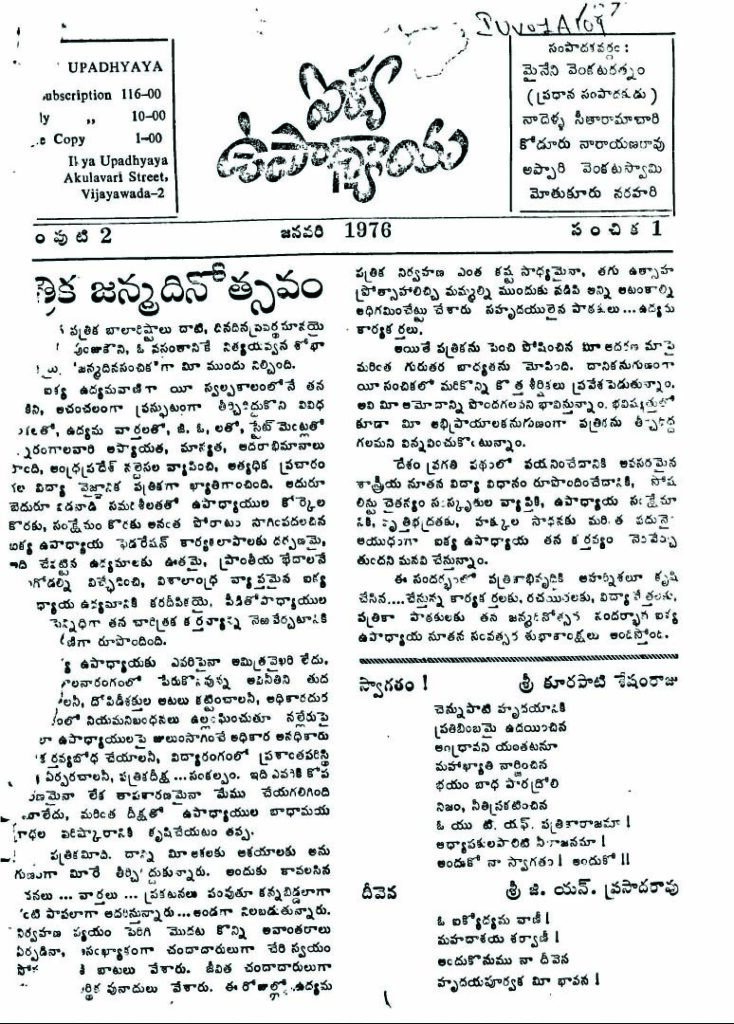 UPADHYAYA
ubscription 116-00
ly ,, 10-00
e Copy 1-00
Ikya Upadhyaya
Akulavari Street,
Vijayawada-2
ఐక్య
ఉపాధ్యాయ
సంపాదకవర్గం :
మైనేని వెంకటరత్నం
( ప్రధాన సంపాదకుడు )
నాదెళ్ళ సీతారామాచారి
కోడూరు నారాయణరావు
అప్పారి వెంకటస్వామి
మోతుకూరు నరహరి
ంపుటి 2 జనవరి 1976 సంచిక 1
త్రిక జన్మదినోత్సవం
పత్రిక బాలారిష్టాలు దాటి, దినదిన ప్రవర్థమానమై
ఓ వసంతానికే నిత్యయవ్వన శోభా
'జన్మదినసంచిక'గా మీ ముందు నిల్చింది.
ఐక్య ఉద్యమవాణిగా యీ స్వల్పకాలంలోనే తన
అచంచలంగా ప్రస్ఫుటంగా తీర్చిదిద్దుకొని వివిధ
ఉద్యమ వార్తలతో, జి. ఓ. లతో, స్టేట్ మెట్లతో
రంగాలవారి అప్యాయత, మాన్యత, ఆదరాభిమానాలు
ఆంధ్రప్రదేశ్ నల్దెసల వ్యాపించి, అత్యధిక ప్రచారం
గల విద్యా వైజ్ఞానిక పత్రికగా ఖ్యాతిగాంచింది. అదురూ
బెదురూ కడనాడి సమశీలతతో ఉపాధ్యాయుల కోర్కెల
కొరకు, సంక్షేమం కొరకు అనంత పోరాటం సాగింపదలచిన
ఐక్య ఉపాధ్యాయ ఫెడరేషన్ కార్యకలాపాలకు దర్పణమై,
ఇది చేపట్టిన ఉద్యమాలకు ఊతమై, ప్రాంతీయ భేదాలనే
గోడల్ని విచ్ఛేదించి, విశాలాంధ్ర వ్యాప్తమైన ఐక్య
ధ్యాయ ఉద్యమానికి కరదీపికయై, పీడితోపాధ్యాయుల
పెన్నిధిగా తన చారిత్రక కర్తవ్యాన్ని నెఱవేర్చటానికి
ణిగా రూపొందింది.
క్య ఉపాధ్యాయకు ఎవరిపైనా అమిత్రవైఖరి లేదు.
లనారంగంలో పేరుకొనివున్న అవినీతిని తుద
దోపిడీశక్తుల ఆటలు కట్టించాలనీ, అధికారదుర
ంలో నియమనిబంధనలు ఉల్లంఘించుతూ నల్లేరుపై
ఉపాధ్యాయులపై జులుంసాగించే అధికార అనధికారు
కర్తవ్యబోధ చేయాలనీ, విద్యారంగంలో ప్రశాంతపరిస్థి
ఏర్పరచాలనీ, పత్రికదీక్ష ... సంకల్పం. ఇది ఎవరికి కోప
ణమైనా లేక తాపకారణమైనా మేము చేయగలిగింది
లేదు, మరింత దీక్షతో ఉపాధ్యాయుల బాధామయ
గాధల పరిష్కారానికి కృషిచేయటం తప్ప.
పత్రికమీది. దాన్ని మీ ఆశలకు ఆశయాలకు అను
గుణంగా మీరే తీర్చిదిద్దుకున్నారు. అందుకు కావలసిన
చనలు ... వార్తలు ... ప్రకటనలు పంపుతూ కన్నబిడ్డలాగా
కంటి పాపలాగా ఆదరిస్తున్నారు ... అండగా నిలబడుతున్నారు.
నిర్వహణ వ్యయం పెరిగి మొదట కొన్ని అవాంతరాలు
ఏర్పడినా, అసంఖ్యాకంగా చందాదారులుగా చేరి స్వయం
బాటలు వేశారు. జీవిత చందాదారులుగా
ర్థిక పునాదులు వేశారు. ఈ రోజుల్లో ఉద్యమ
పత్రిక నిర్వహణ ఎంత కష్ట సాధ్యమైనా, తగు ఉత్సాహ
ప్రోత్సాహాలిచ్చి మమ్మల్ని ముందుకు నడిపి అన్ని ఆటంకాల్ని
అధిగమించేట్టు చేశారు సహృదయులైన పాఠకులు ... ఉద్యమ
కార్యకర్తలు.
అయితే పత్రికను పెంచి పోషించిన మీ ఆదరణ మాపై
మరింత గురుతర బాధ్యతను మోపింది. దానికనుగుణంగా
యీ సంచికలో మరికొన్ని కొత్త శీర్షికలు ప్రవేశపెడుతున్నాం.
అవి మీ ఆమోదాన్ని పొందగలవని భావిస్తున్నాం. భవిష్యత్తులో
కూడా మీ అభిప్రాయాలకనుగుణంగా పత్రికను తీర్చిదిద్ద
గలమని విన్నవించుకొంటున్నాం.
దేశం ప్రగతి పథంలో పయనించేదానికి అవసరమైన
శాస్త్రీయ నూతన విద్యా విధానం రూపొందించేదానికి, సోష
లిస్టు చైతన్యం సంస్కృతుల వ్యాప్తికి, ఉపాధ్యాయ సంక్షేమా
నికి, వృత్తిభద్రతకు, హక్కుల సాధనకు మరింత పదునైన
ఆయుధంగా ఐక్య ఉపాధ్యాయ తన కర్తవ్యం నెరవేర్చు
తుందని మనవి చేస్తున్నాం.
ఈ సందర్భంలో పత్రికాభివృద్ధికి అహర్నిశలూ కృషి
చేసిన....చేస్తున్న కార్యకర్తలకు, రచయితలకు, విద్యావేత్తలకు,
పత్రికా పాఠకులకు తన జన్మదినోత్సవ సందర్భంగా ఐక్య
ఉపాధ్యాయ నూతన సంవత్సర శుభాకాంక్షలు అందిస్తోంది.
స్వాగతం ! శ్రీ కూరపాటి శేషంరాజు
చెన్నుపాటి హృదయానికి
ప్రతిబింబమై ఉదయించిన
ఆంధ్రావని యంతటనూ
మహాఖ్యాతి నార్జించిన
భయం బాధ పారద్రోలి
నిజం, నీతి ప్రకటించిన
ఓ యు టి. యఫ్. పత్రికారాజమా !
అధ్యాపకులపాలిటి నీరాజనమా !
అందుకో నా స్వాగతం ! అందుకో !!
దీవెన శ్రీ జి. యన్. ప్రసాదరావు
ఓ ఐక్యోద్యమ వాణీ !
మహదాశయ శర్వాణీ !
అందుకొనుము నా దీవెన
హృదయపూర్వక మీ భావన !